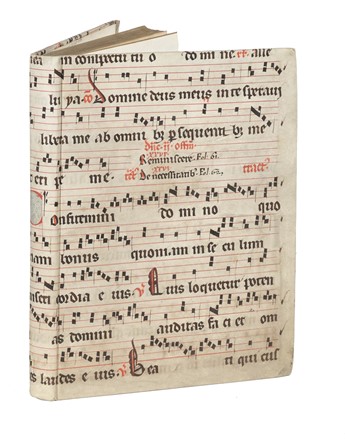 in conspectu tu o do mi ne. alle
lu ya. Domine deus meus in te speraui
libera me ab omnibꝫ persequentibꝫ me
Reminiscere. Fol. 61.
et e ri pe me. De necessitatibꝫ. Fol. 62. tract.
Confitemini do mi no quo
niam bonus quoniam in se cu lum
miseri cordia e ius. ℣ Quis loquetur poten
cias domi ni auditas fa ci et om
nes laudes e ius. ℣ Bea ti qui cus